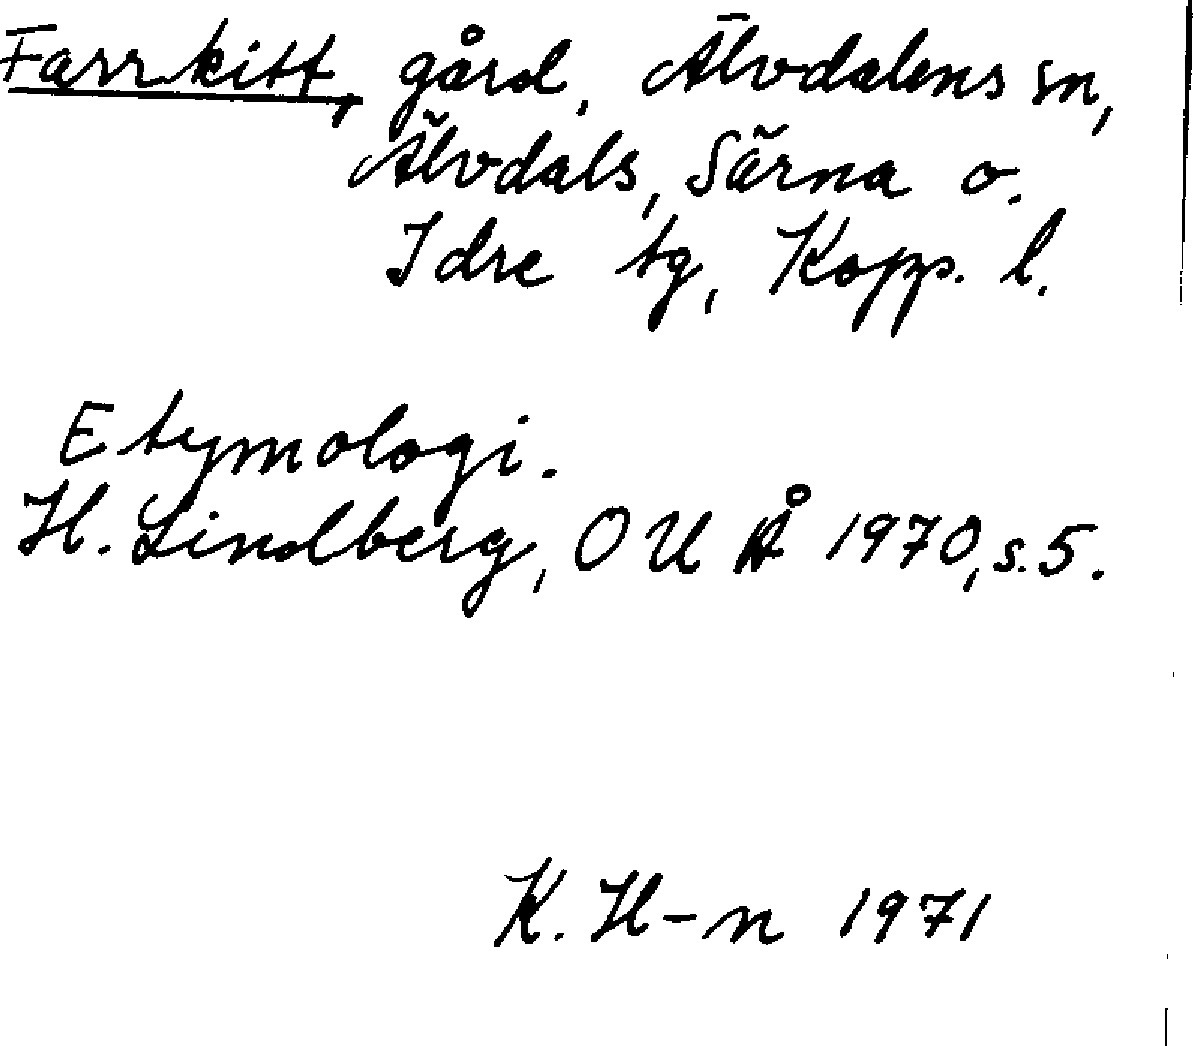 Farrkitt, gård, Älvdalens sn,
Älvdals, Särna o.
Idre tg, Kopp. l.
Etymologi.
H. Lindberg, OUÅ 1970, s. 5.
K. H-n 1971